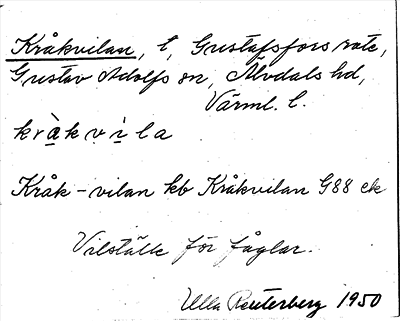 Kråkvilan, l, Gustafsfors rote,
Gustav Adolfs sn, Älvdals hd,
Värml. l.
kràkvìla
Kråk-vilan kb Kråkvilan G88 ek
Vilställe för fåglar.
Ulla Reuterberg 1950